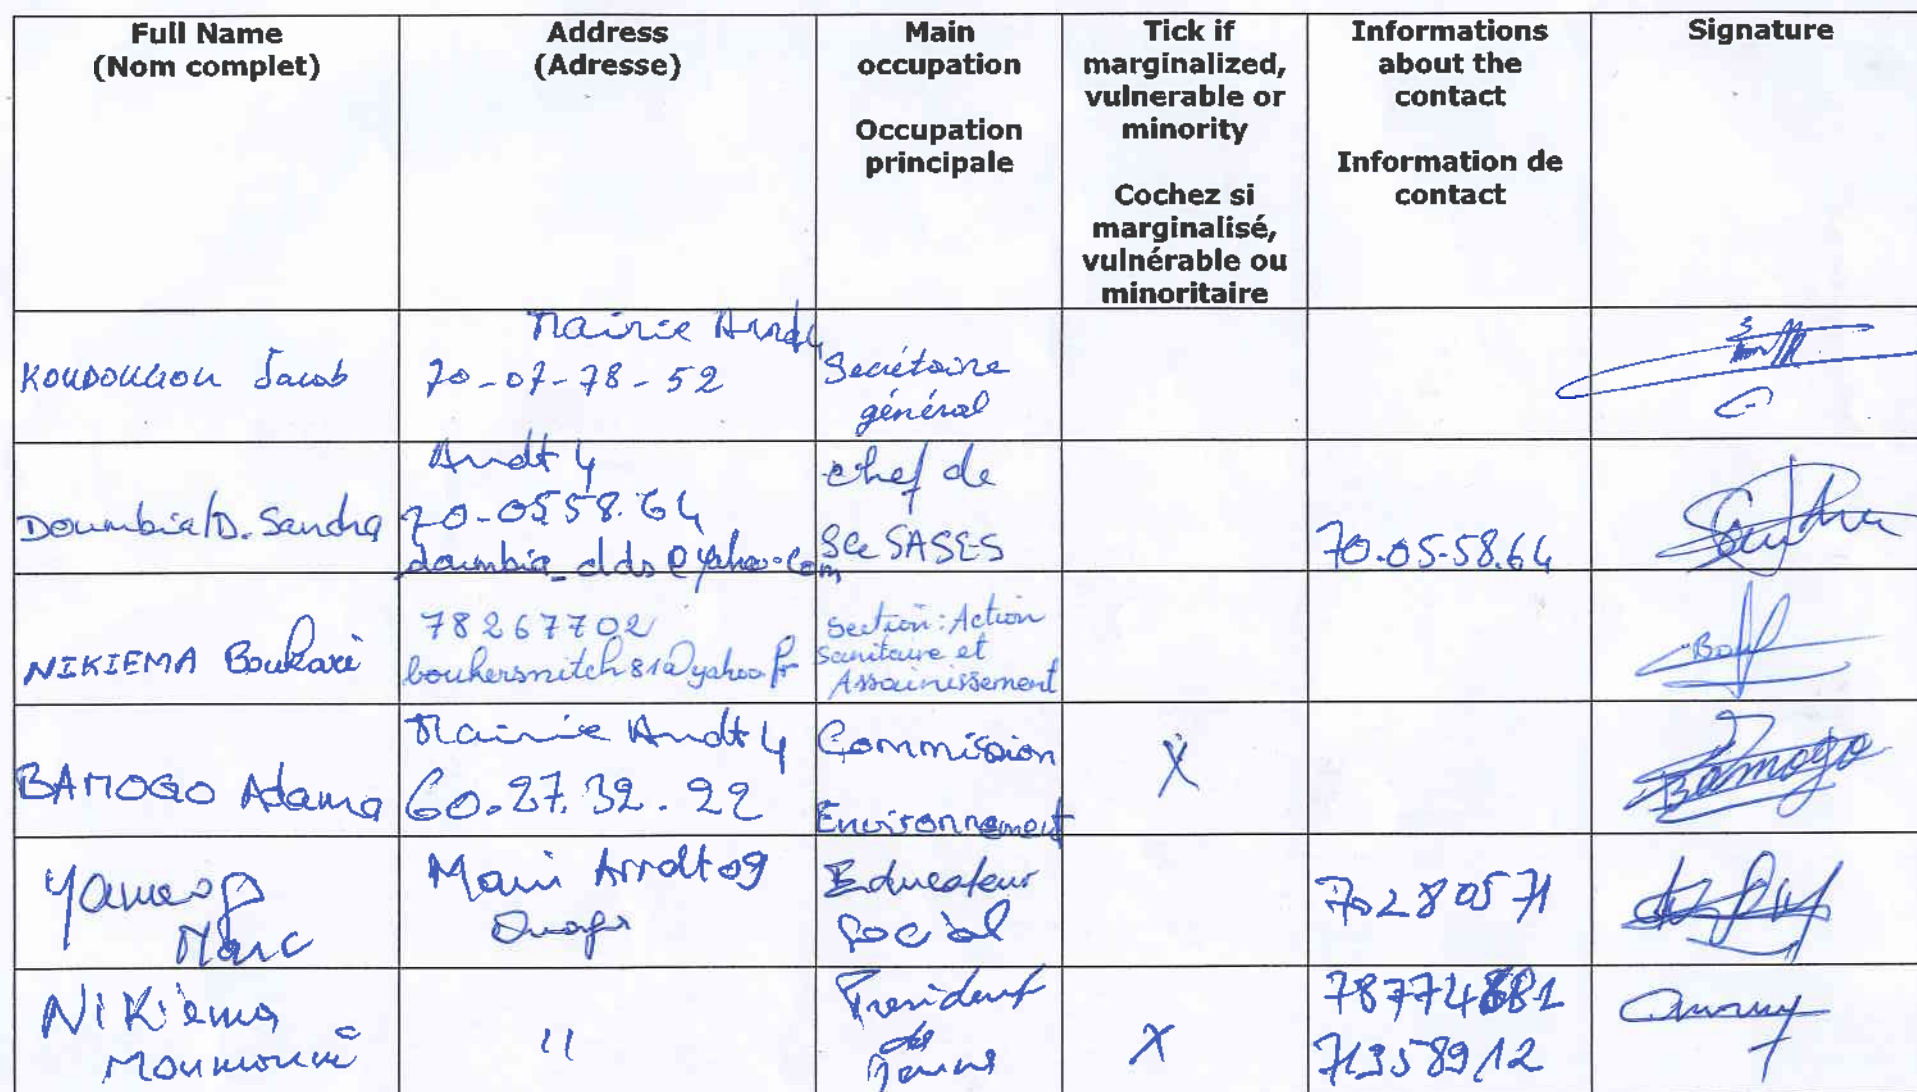 Full Name
(Nom complet)
Address
(Adresse)
Main
occupation
Occupation
principale
Tick if
marginalized,
vulnerable or
minority
Cochez si
marginalisé,
vulnérable ou
minoritaire
Informations
about the
contact
Information de
contact
Signature
KOUDOUGOU Jacob
Mairie Arrdt 4
70-07-78-52
Secrétaire
général
Doumbia/D. Sandra
Arrdt 4
70-05 58.64
doumbia_dds@yahoo.com
chef de
Sce SASES
70.05-58.64
NIKIEMA Boukaré
78267702
boukersmitch81@yahoo.fr
Section: Action
Sanitaire et
Assainissement
BAMOGO Adama
Mairie Arrdt 4
60.27.32.22
Commission
Environnement
X
Bamogo
Yameogo
Marc
Mairi Arrdt 09
Ouaga
Educateur
social
70280571
NIKiema
Moumouni
"
President
des
Jeunes
X
71358912